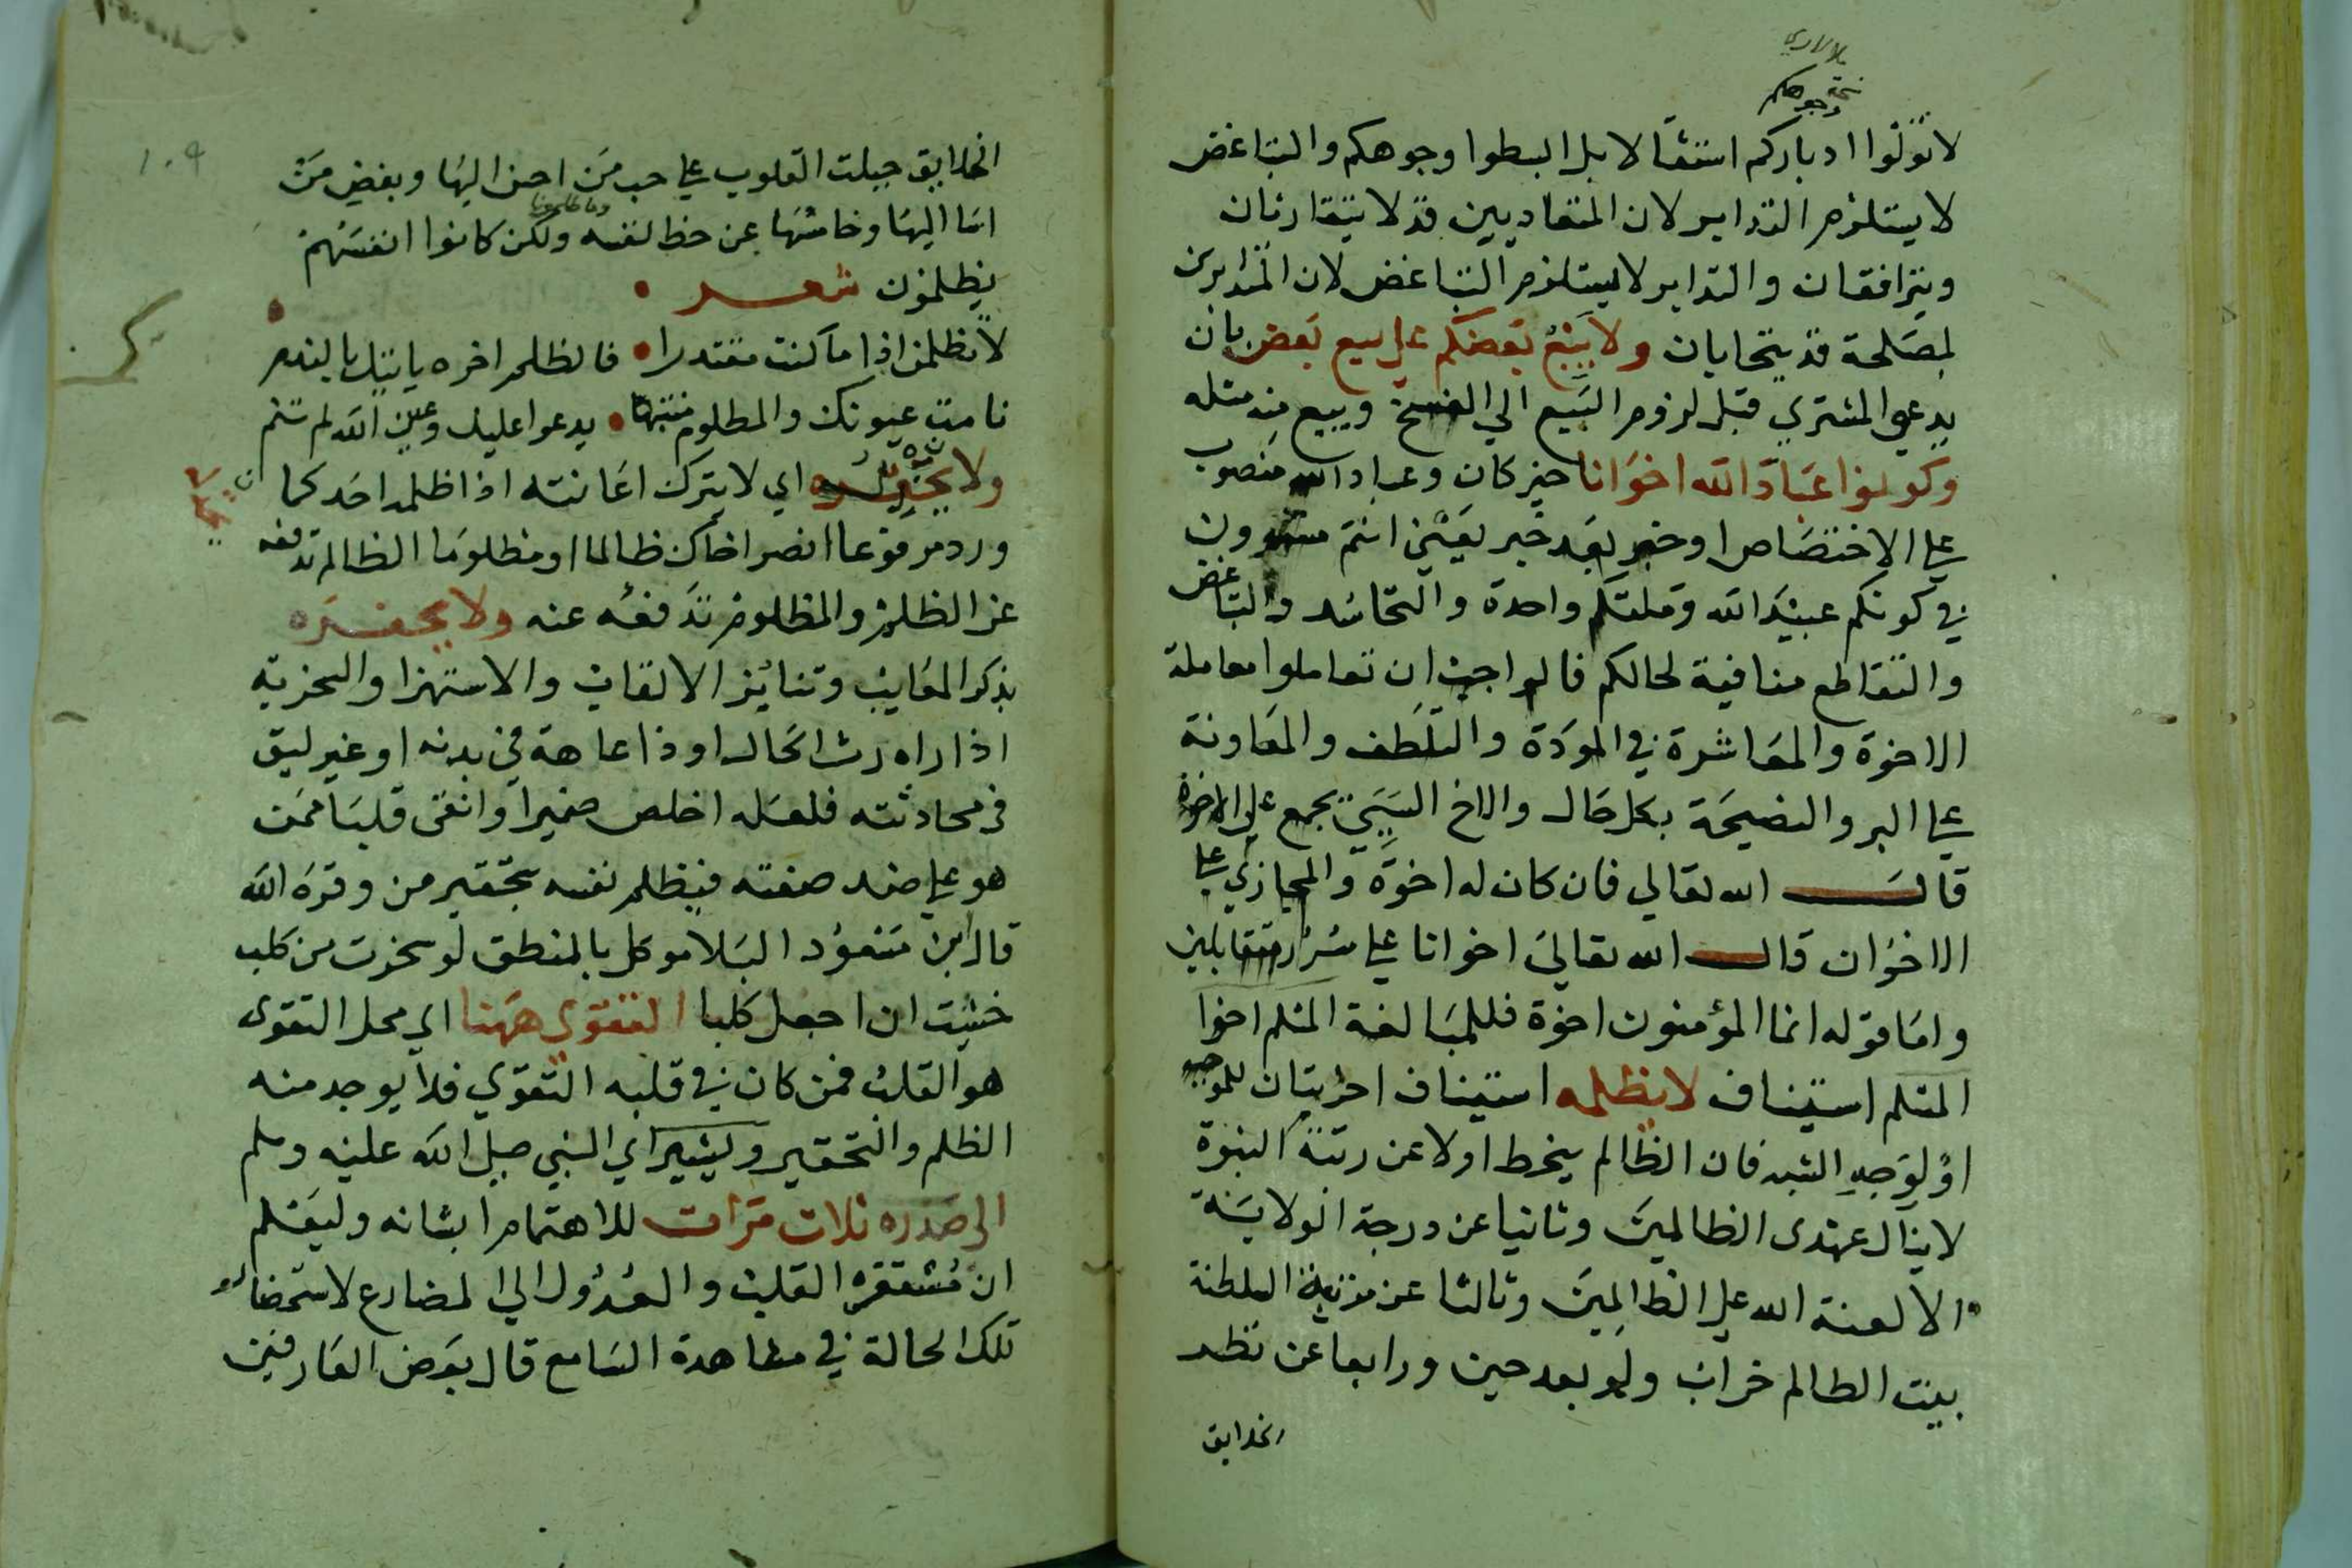 لا تولوا ادباركم استثقالا بل ابسطوا وجوهكم والتباغض
لا يستلزم التدابر لان المتعاديين قد لا يتقارنان
ويترافقان والتدابر لا يستلزم التباغض لان المتدابرين
لمصلحة قد يتحابان ولا يبع بعضكم على بيع بعض بان
يدعي المشتري قبل لزوم البيع الي الفسخ ويبيع منه مثله
وكونوا عباد الله اخوانا خبر كان وعباد الله منصوب
علي الاختصاص او خبر بعد خبر يعني انتم مستوون
في كونكم عبيد الله وملتكم واحدة والتحاسد والتباغض
والتقاطع منافية لحالكم فالواجب ان تعاملوا معاملة
الاخوة والمعاشرة في المودة والتلطف والمعاونة
علي البر والنصيحة بكل حال والاخ النسبي يجمع على الاخوة
قال الله تعالي فان كان له اخوة والمجازي علي
الاخوان قال الله تعالي اخوانا علي سرر متقابلين
واما قوله انما المؤمنون اخوة فللمبالغة المسلم اخوا
المسلم استيناف لا يظلمه استيناف اخر بيان للموجب
او لوجه الشبه فان الظالم ينحط اولا عن رتبة النبوة
لا ينال عهدى الظالمين وثانيا عن درجة الولاية
الا لعنة الله على الظالمين وثالثا عن مزية السلطنة
بيت الظالم خراب ولو بعد حين ورابعا عن نظر
الخلايق
وجوهكم
الخلايق جبلت القلوب علي حب من احسن اليها وبغض من
اسا اليها وخامسها عن حظ نفسه وما ظلمونا ولكن كانوا انفسهم
يظلمون شعر
لا تظلمن اذا ما كنت مقتدرا فالظلم اخره ياتيك بالندم
نامت عيونك والمظلوم منتبها يدعوا عليك وعين الله لم تنم
ولا يخذله اي لا يترك اعانته اذا ظلمه احد كما
ورد مرفوعا انصر اخاك ظالما او مظلوما الظالم تدفعه
عن الظلم والمظلوم تدفعه عنه ولا يحقره
بذكر المعايب وتنابز الالقاب والاستهزا والسخرية
اذا راه رث الحال او ذا عاهة في بدنه او غير لبق
في محادثته فلعله اخلص ضميرا وانقى قلبا ممن
هو علي ضد صفته فيظلم نفسه بتحقير من وقره الله
قال ابن مسعود البلا موكل بالمنطق لو سخرت من كلب
خشيت ان اجعل كلبا التقوى ههنا اي محل التقوى
هو القلب فمن كان في قلبه التقوي فلا يوجد منه
الظلم والتحقير ويشير اي النبي صلى الله عليه وسلم
الى صدره ثلاث مرات للاهتمام بشانه وليعلم
ان مستقره القلب والعدول الي المضارع لاستحضار
تلك الحالة في مشاهدة السامع قال بعض العارفين